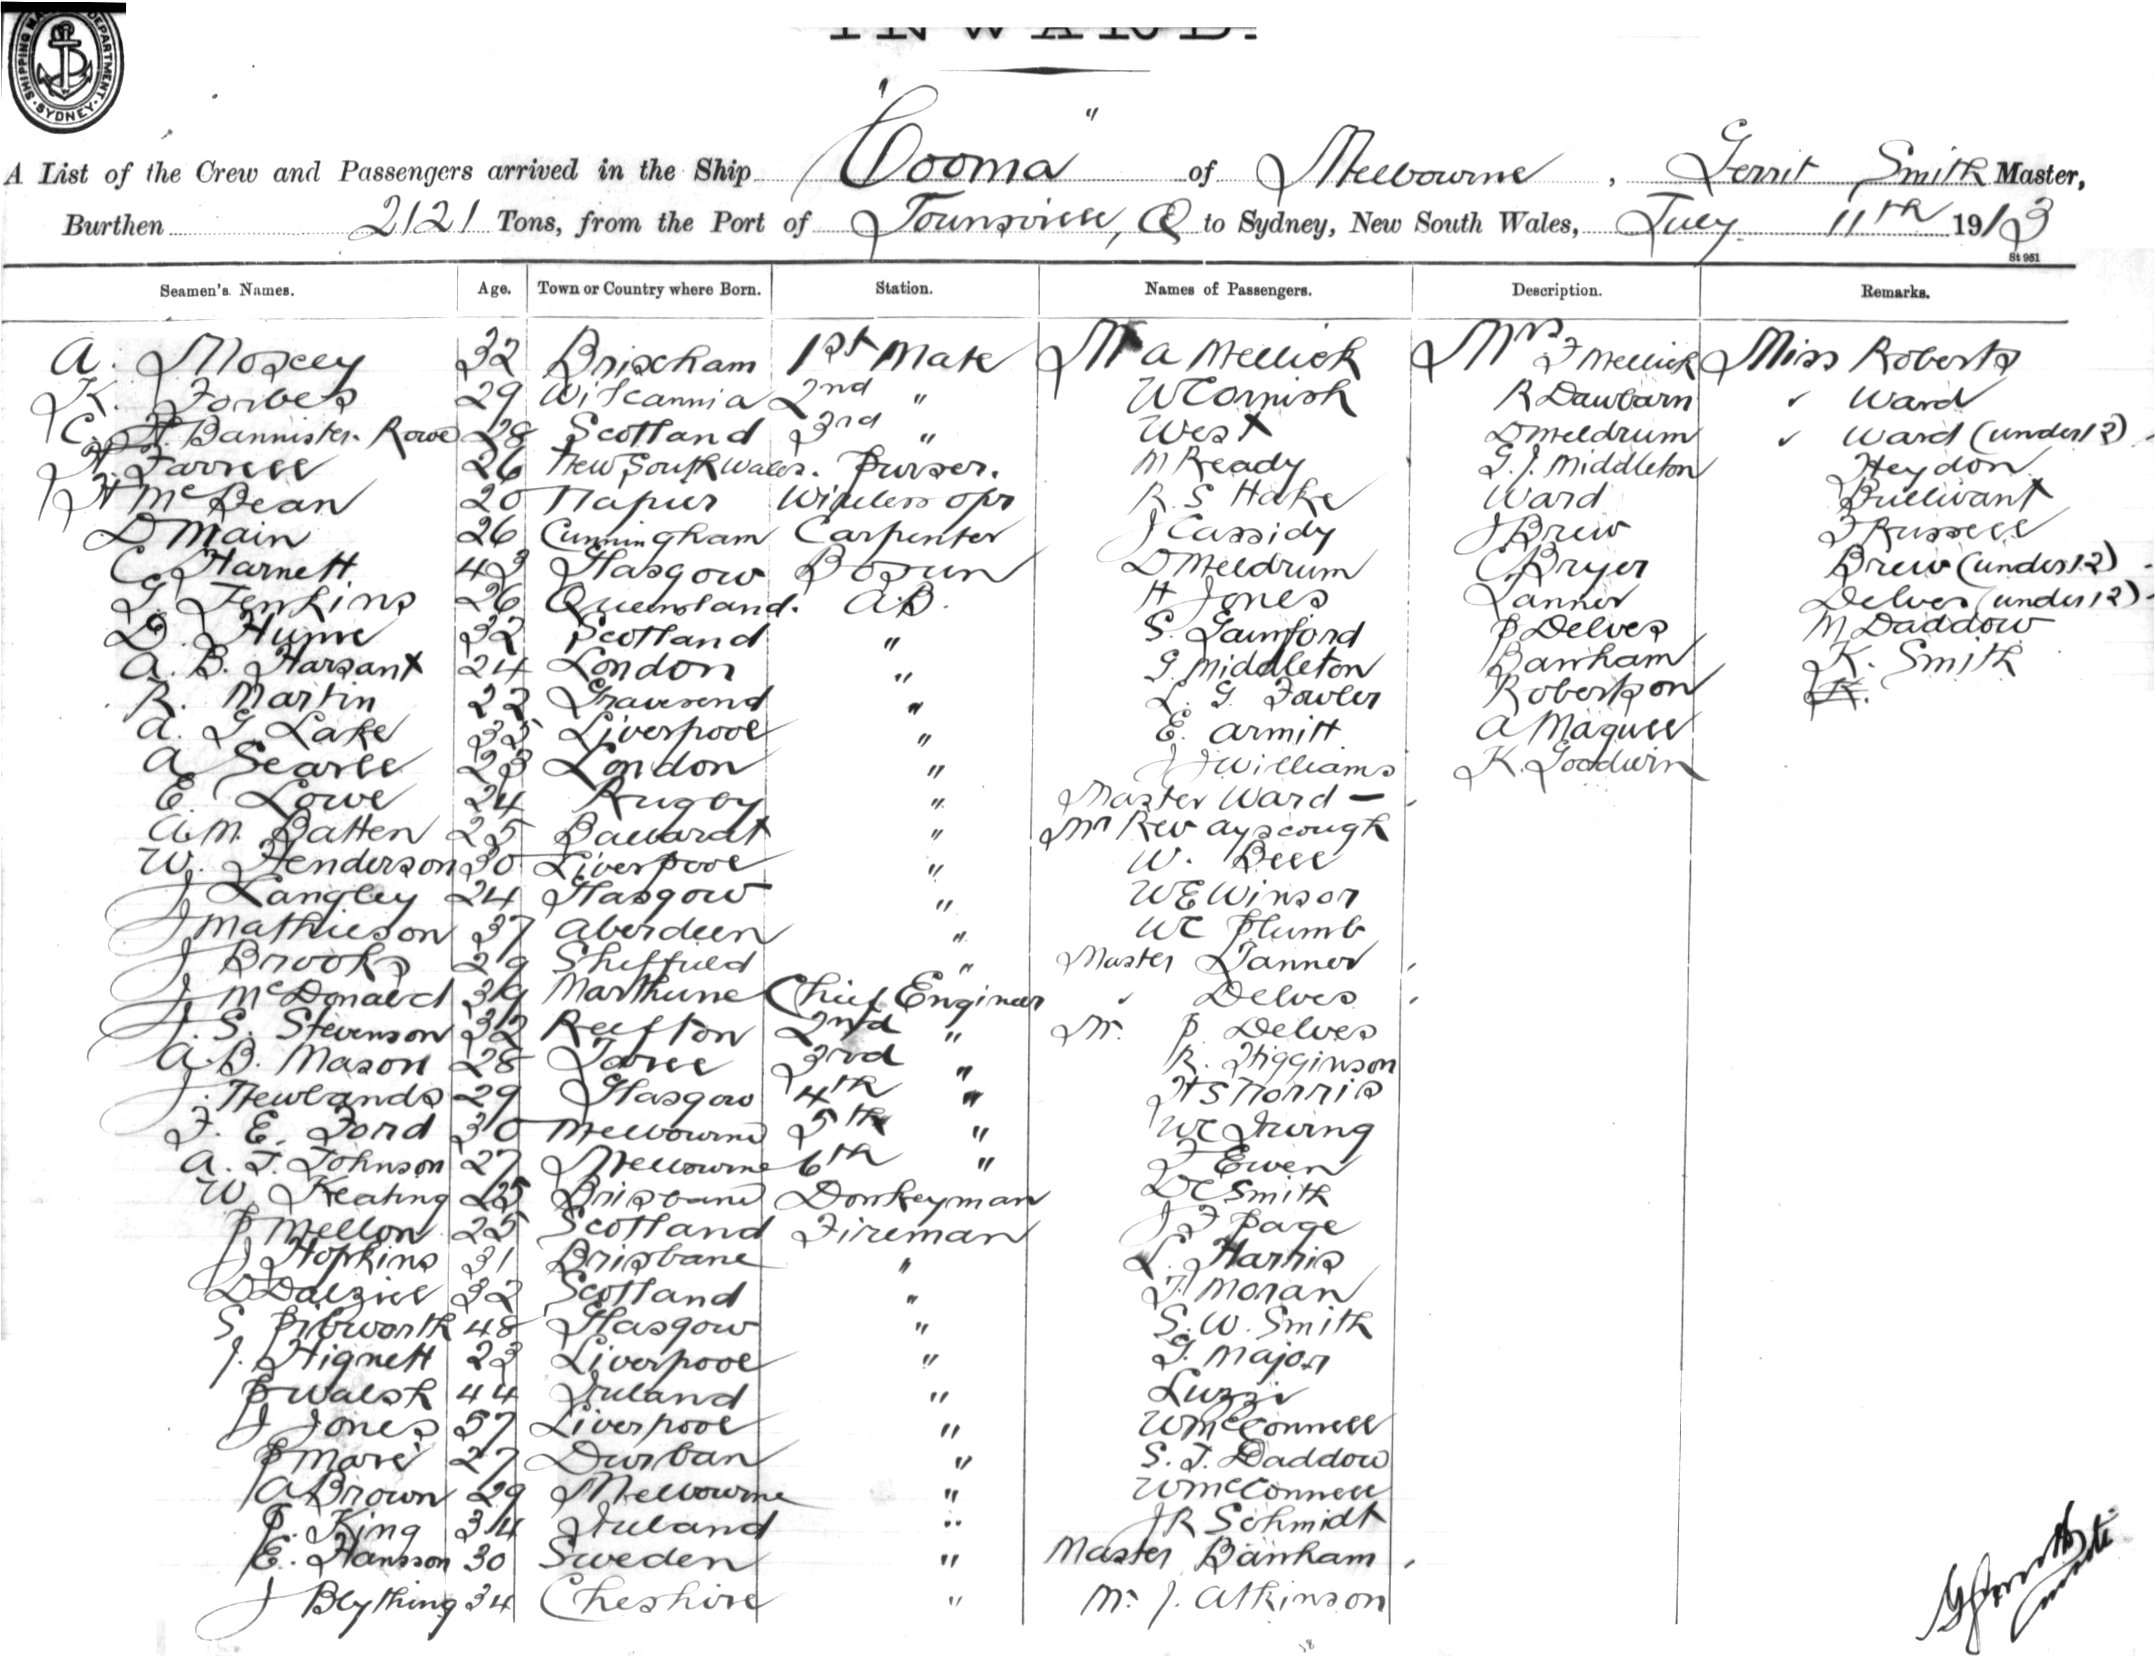 SHIPPING MA DEPARTMENT · SYDNEY ·
INWARD.
A List of the Crew and Passengers arrived in the Ship "Cooma" of Melbourne, Gerrit Smith Master,
Burthen 2121 Tons, from the Port of Townsville, Q to Sydney, New South Wales, July 11th 1913
St 961
Seamen's Names. Age. Town or Country where Born. Station. Names of Passengers. Description. Remarks.
A. Moxey 32 Brixham 1st Mate Mr A Mellick Mrs F Mellick Miss Roberts
K. Forbes 29 Wilcannia 2nd " W Cornish R Dawbarn " Ward
C. Bannister Rowe 28 Scotland 3rd " West D Meldrum " Ward (under 12)
H. Farrell 26 New South Wales. Purser. M Ready G. J. Middleton Heydon
H McBean 20 Napier Wireless opr R. S Hake Ward Bullivant
D Main 26 Cunningham Carpenter J Cassidy J Brew F Russell
C Harnett 43 Glasgow Bosun D Meldrum C Bryer Brew (under 12)
G. Jenkins 26 Queensland. A.B. H Jones Tanner Delves (under 12)
D. Hume 32 Scotland " S. Gainford P Delves M Daddow
A. B. Harsant 24 London " G. Middleton Banham K. Smith
R. Martin 22 Gravesend " L. G. Fowler Robertson K.
A. G Lake 35 Liverpool " E. Armitt A Magull
A Searle 23 London " J J Williams K. Goodwin
E. Lowe 24 Rugby " Master Ward —
A. M. Batten 25 Ballarat " Mr Rev Ayscough
W. Henderson 30 Liverpool " W. Bell
J Langley 24 Glasgow " W E Winsor
J Mathieson 37 Aberdeen " W C Plumb
J Brooks 29 Sheffield " Master Tanner
J. McDonald 39 Chief Engineer " Delves
J. S. Stevenson 32 Reefton 2nd " Mr. P Delves
A. B. Mason 28 Taree 3rd " R. Higginson
J. Newlands 29 Glasgow 4th " H S Norris
F. E. Ford 30 Melbourne 5th " W C Irving
A. J. Johnson 27 Melbourne 6th " F Ewen
W. Keating 25 Brisbane Donkeyman D C Smith
P Mellon 25 Scotland Fireman J F Page
J Hopkins 31 Brisbane " L. Harris
D Dalziel 32 Scotland " F. Moran
S Pibworth 48 Glasgow " S. W. Smith
J. Hignett 23 Liverpool " G. Major
P Walsh 44 Ireland " Luzzi
J Jones 57 Liverpool " W McConnell
P Maré 27 Durban " S. J. Daddow
A Brown 29 Melbourne " W McConnell
P. King 34 Ireland " J R Schmidt
E. Hansson 30 Sweden " Master Banham
J Blything 34 Cheshire " Mr. J. Atkinson